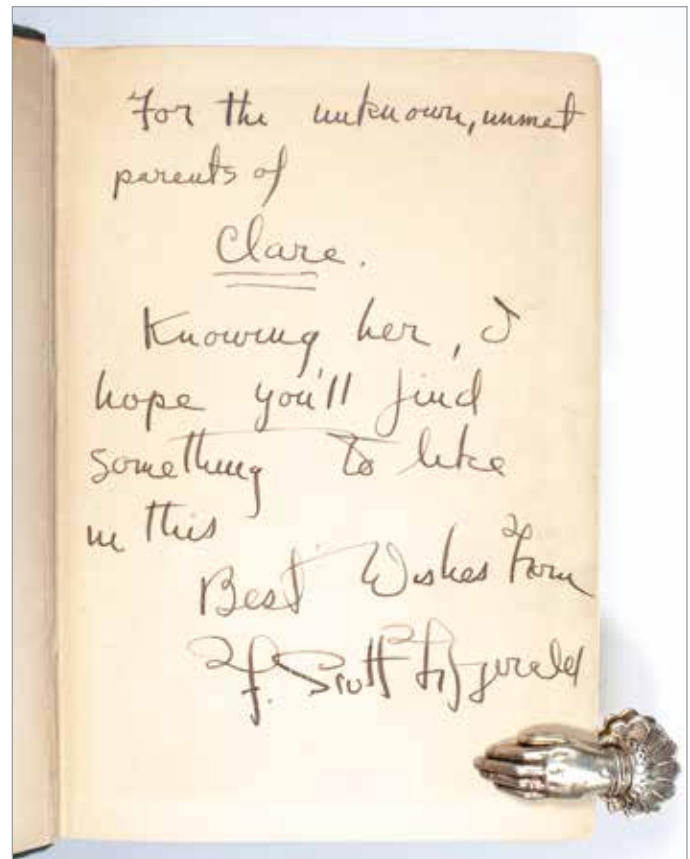 For the unknown, unmet
parents of
Clare.
Knowing her, I
hope you'll find
something to like
in this
Best Wishes From
F. Scott Fitzgerald